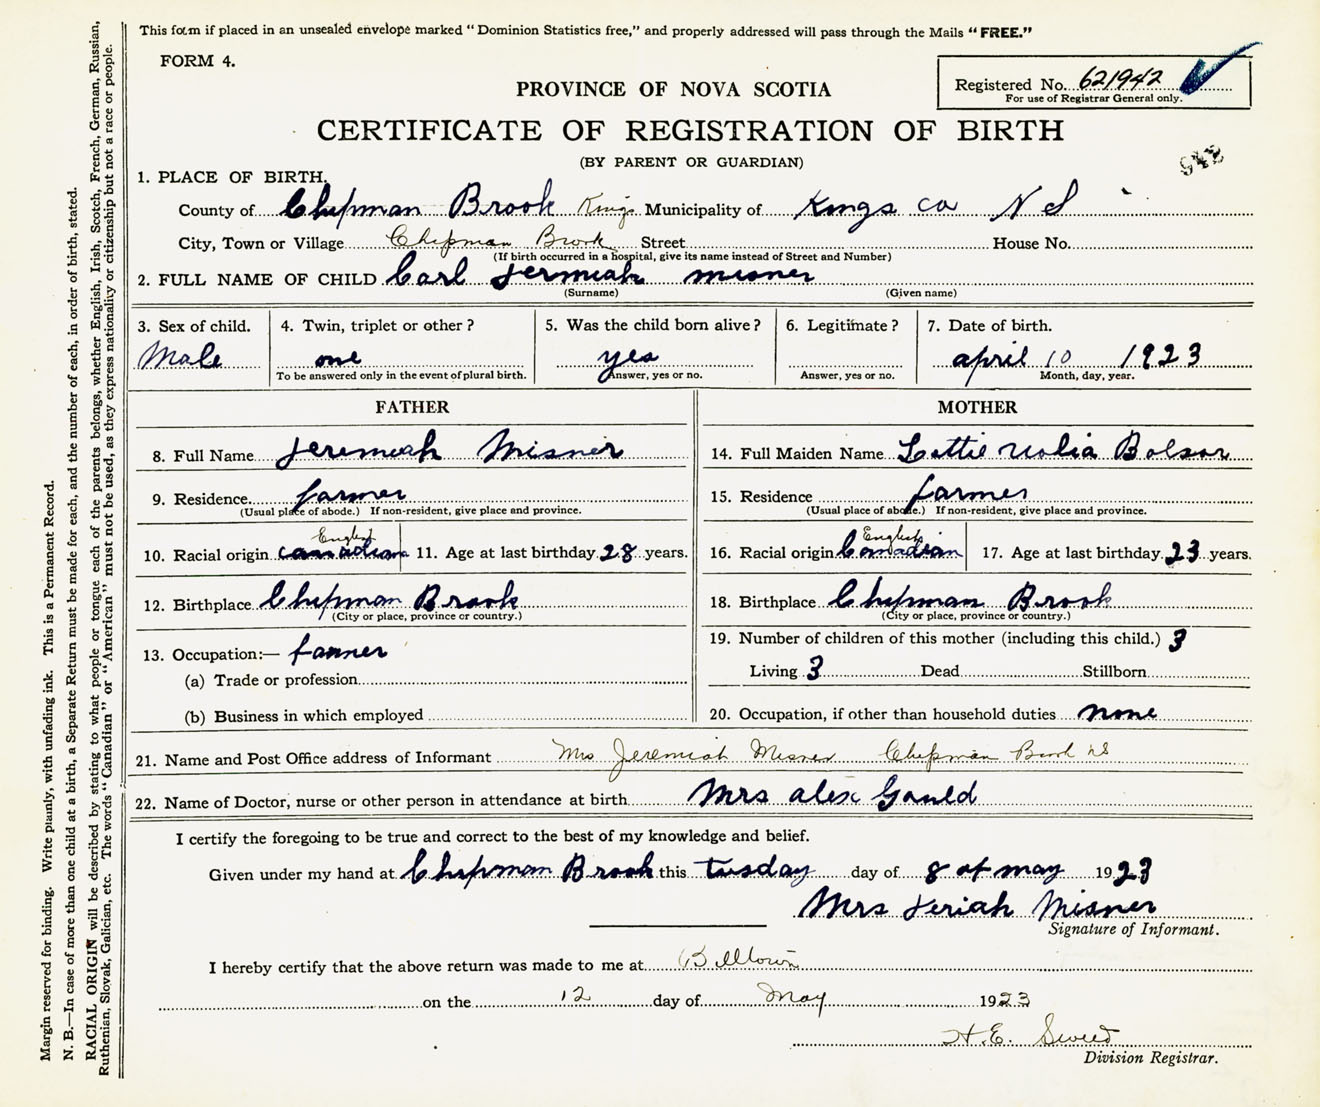 This form if placed in an unsealed envelope marked "Dominion Statistics free," and properly addressed will pass through the Mails "FREE."
FORM 4.
Registered No. 621942
For use of Registrar General only.
PROVINCE OF NOVA SCOTIA
CERTIFICATE OF REGISTRATION OF BIRTH
(BY PARENT OR GUARDIAN)
942
1. PLACE OF BIRTH.
County of Chipman Brook Kings Municipality of Kings co N S
City, Town or Village Chipman Brook Street House No.
(If birth occurred in a hospital, give its name instead of Street and Number)
2. FULL NAME OF CHILD Carl Jermiah misner
(Surname) (Given name)
3. Sex of child. Male
4. Twin, triplet or other? one
To be answered only in the event of plural birth.
5. Was the child born alive? yes
Answer, yes or no.
6. Legitimate?
Answer, yes or no.
7. Date of birth.
april 10 1923
Month, day, year.
FATHER
8. Full Name Jeremiah Misner
9. Residence farmer
(Usual place of abode.) If non-resident, give place and province.
English
10. Racial origin canadian 11. Age at last birthday 28 years.
12. Birthplace Chipman Brook
(City or place, province or country.)
13. Occupation:— farmer
(a) Trade or profession
(b) Business in which employed
MOTHER
14. Full Maiden Name Lottie Bolsor
15. Residence farmer
(Usual place of abode.) If non-resident, give place and province.
English
16. Racial origin Canadian 17. Age at last birthday 23 years.
18. Birthplace Chipman Brook
(City or place, province or country.)
19. Number of children of this mother (including this child.) 3
Living 3 Dead Stillborn
20. Occupation, if other than household duties none
21. Name and Post Office address of Informant Mrs Jeremiah Misner Chipman Brook NS
22. Name of Doctor, nurse or other person in attendance at birth Mrs alex Gould
I certify the foregoing to be true and correct to the best of my knowledge and belief.
Given under my hand at Chipman Brook this tusday day of 8 of may 1923
Mrs Jeriah Misner
Signature of Informant.
I hereby certify that the above return was made to me at Billtown
on the 12 day of May 1923
H. E.
Division Registrar.
Margin reserved for binding. Write plainly, with unfading ink. This is a Permanent Record.
N. B.—In case of more than one child at a birth, a Separate Return must be made for each, and the number of each, in order of birth, stated.
RACIAL ORIGIN will be described by stating to what people or tongue each of the parents belongs, whether English, Irish, Scotch, French, German, Russian,
Ruthenian, Slovak, Galician, etc. The words "Canadian" or "American" must not be used, as they express nationality or citizenship but not a race or people.